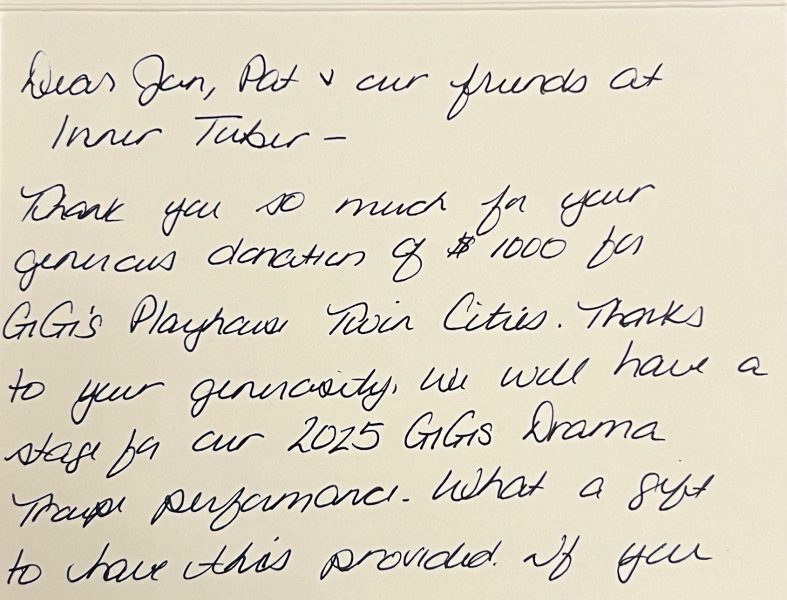 Dear Jan, Pat & our friends at
Inner Tuber -
Thank you so much for your
generous donation of $1000 for
GiGi's Playhouse Twin Cities. Thanks
to your generosity, we will have a
stage for our 2025 GiGi's Drama
Troupe performance. What a gift
to have this provided. If you